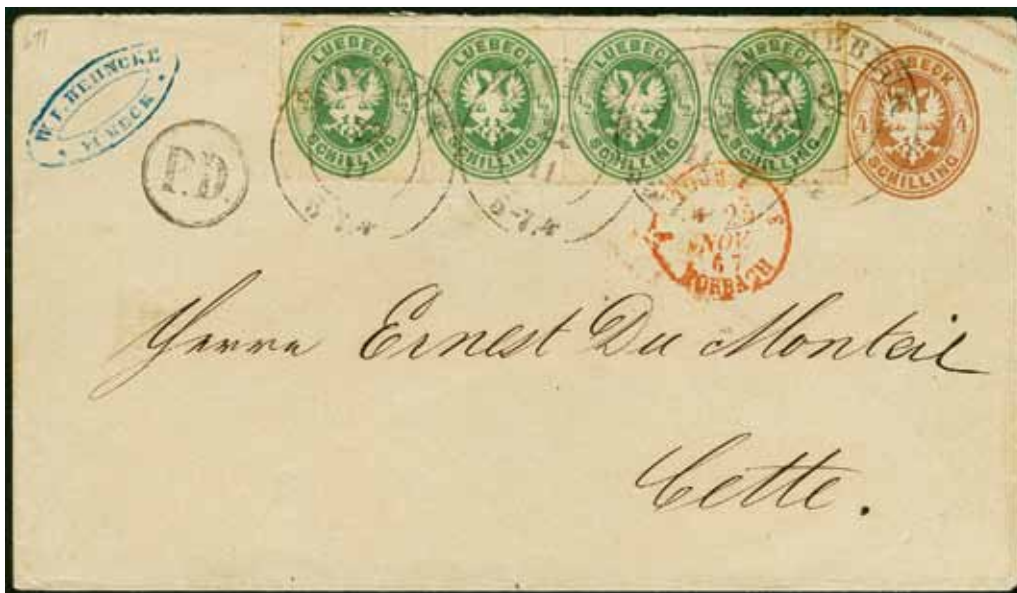 W. L. BEHNCKE
LÜBECK
P.D.
LUEBECK
½
½
SCHILLING
LUEBECK
½
½
SCHILLING
LUEBECK
½
½
SCHILLING
LUEBECK
½
½
SCHILLING
LÜBECK
4
4
SCHILLING
11
5-7.N
11
5-7.N
11
25
NOV.
67
FORBACH
3
Herrn Ernest Du Monteil
Cette.